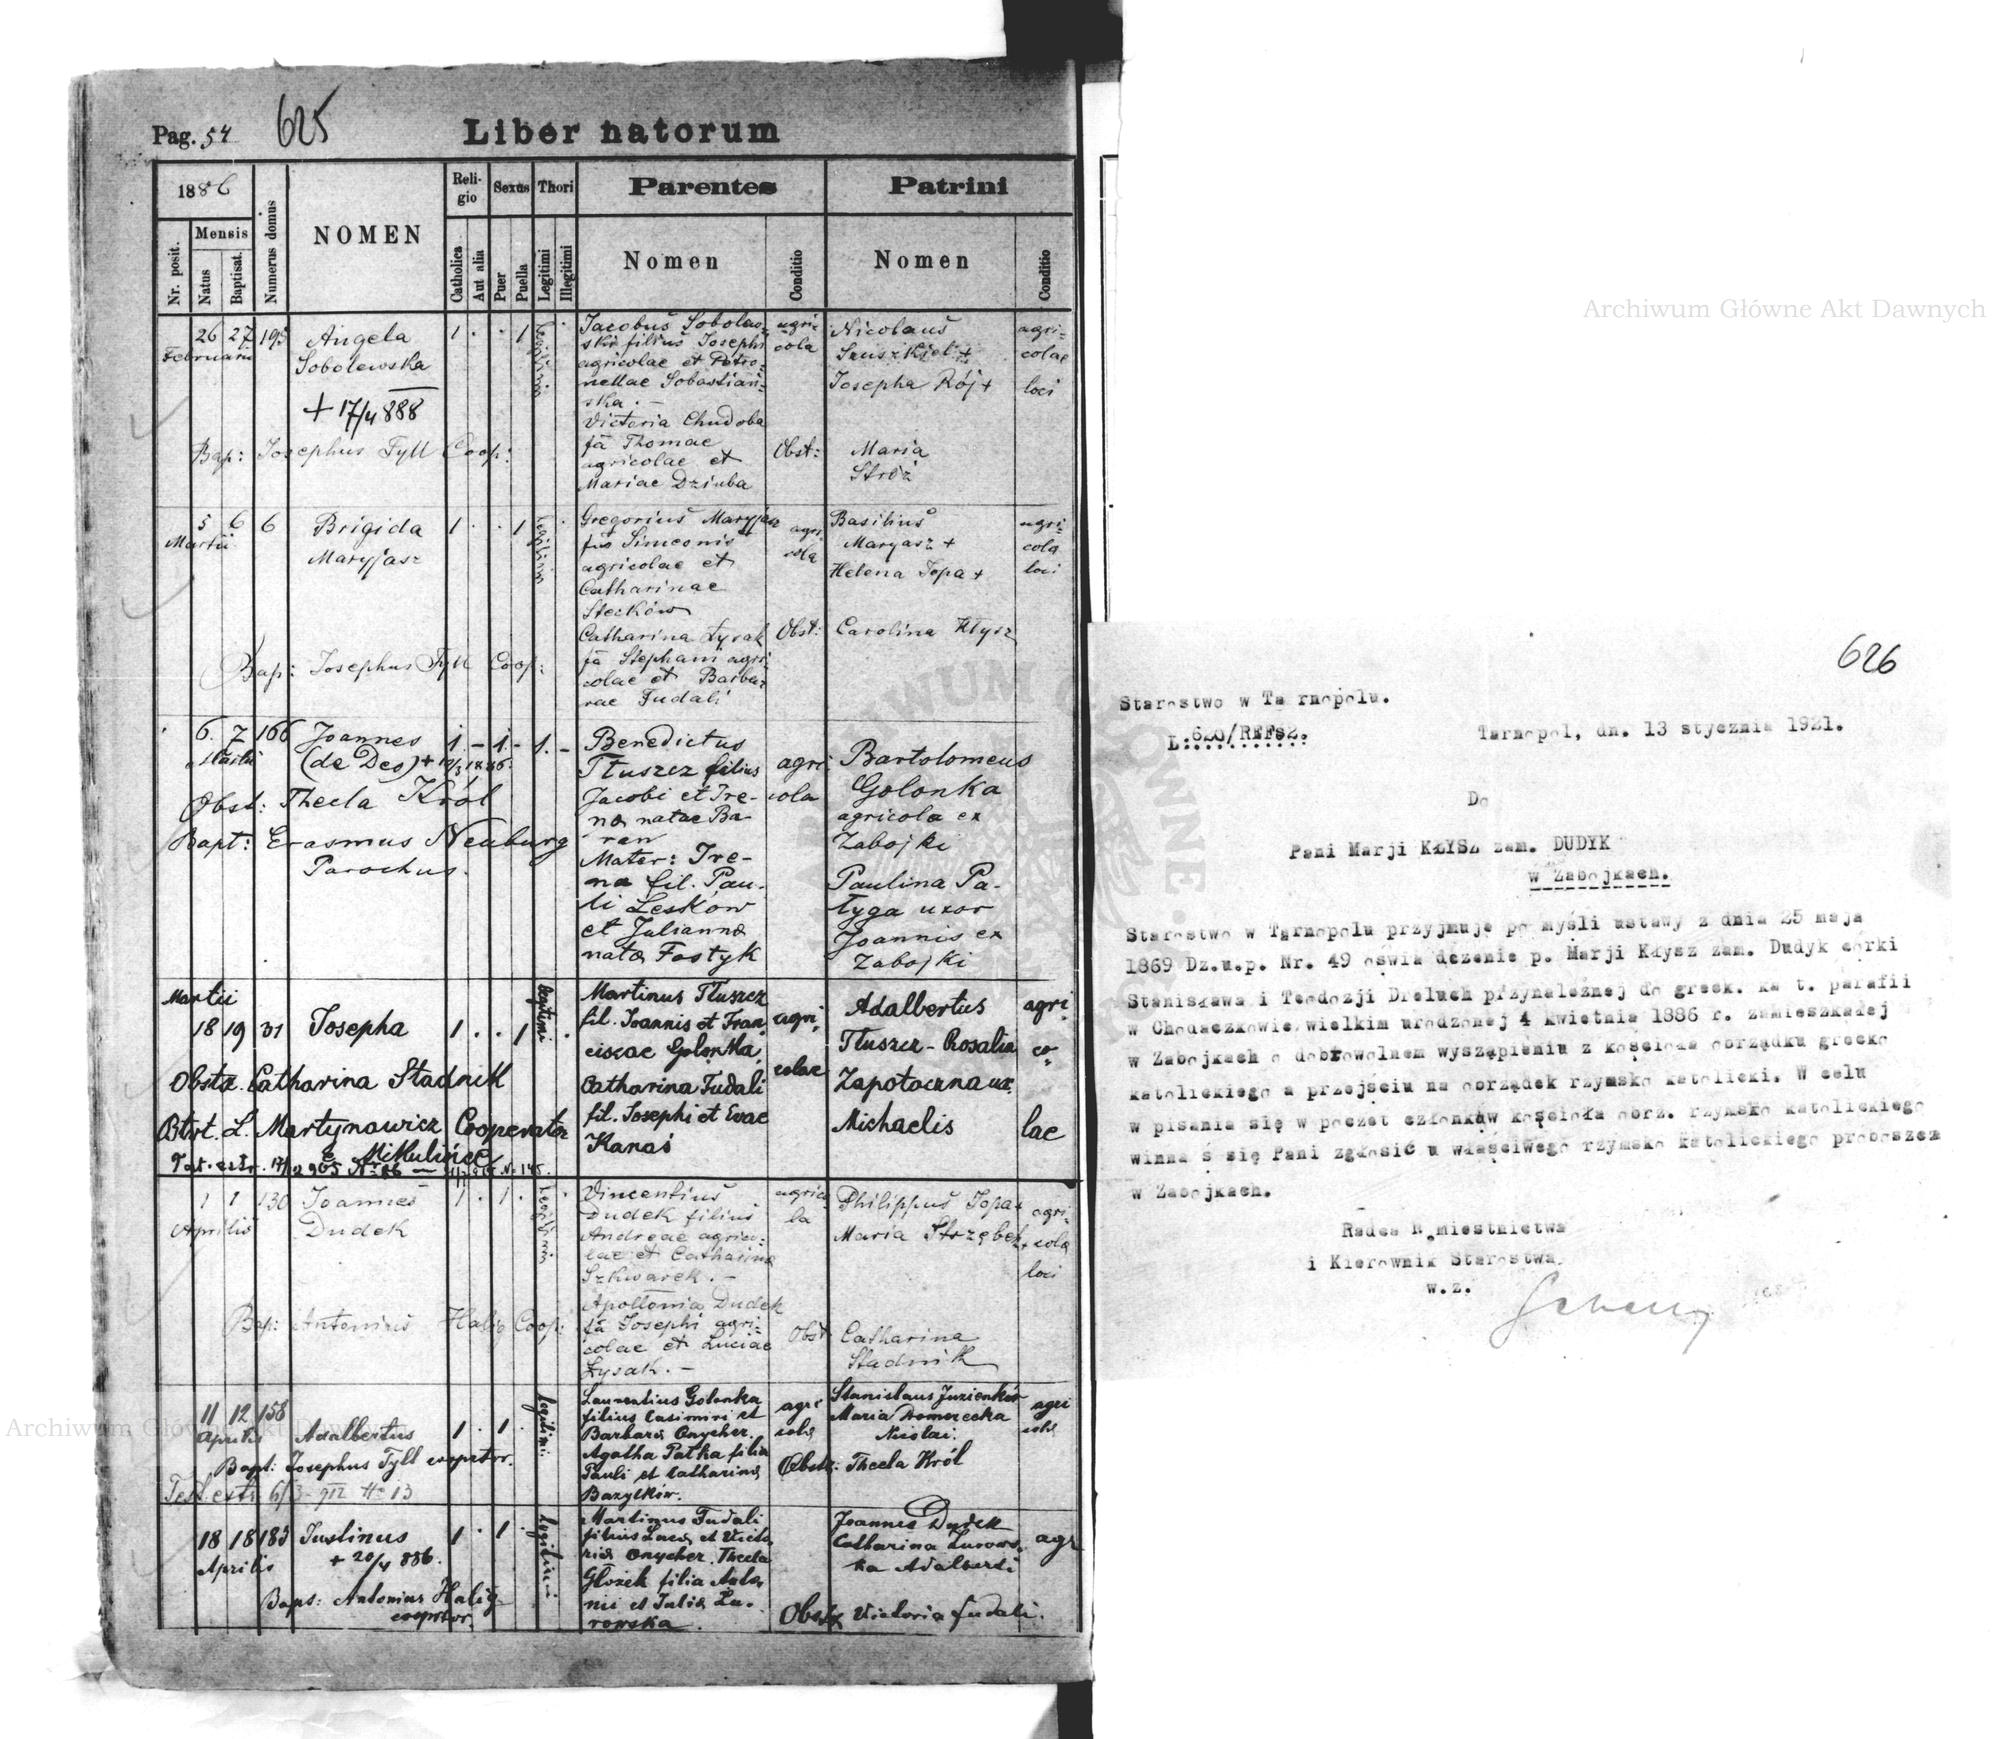 Pag. 54
625
Liber natorum
1886
Nr. posit.
Mensis
Natus
Baptisat.
Numerus domus
NOMEN
Religio
Catholica
Aut alia
Sexus
Puer
Puella
Thori
Legitimi
Illegitimi
Parentes
Nomen
Conditio
Patrini
Nomen
Conditio
26 27 195 Angela
Februarii
Sobolewska
+ 17/4 888
Bap: Josephus Tyll Coop:
1 . . 1 legitimi
Jacobus Sobolew-
ski filius Josephi
agricolae et Petro-
nellae Sobastian-
ska. –
Victoria Chudoba
fa Thomae
agricolae et
Mariae Dziuba
agri-
cola
Nicolaus
Szuszkiel +
Josepha Rój +
agri-
colae
loci
Obst: Maria
Stróż
5 6 6 Brigida
Martii
Maryjasz
Bap: Josephus Tyll Coop:
1 . . 1 legitimi
Gregorius Maryjasz
fus Simeonis
agricolae et
Catharinae
Steckow
Catharina Łysak
fa Stephani agri-
colae et Barba-
rae Fudali
agri
cola
Basilius
Maryasz +
Helena Topa +
agri-
cola
loci
Obst: Carolina Kłysz
6. 7 166 Joannes
Martii
(de Deo) +
Obst: Thecla Król
Bapt: Erasmus Neuburg
Parochus.
1. - 1. - 1. -
Benedictus
Tłuszcz filius
Jacobi et Ire-
na natae Ba-
ran
Mater: Ire-
na fil. Pau-
li Lesków
et Julianna
nata Fostyk
agri
cola
Bartolomeus
Golonka
agricola ex
Zabojki
Paulina Pa-
tyga uxor
Joannis ex
Zabojki
Martii
18 19 31 Josepha
Obstr. Catharina Stadnik
Btst. L. Martynowicz Cooperator
e Mikulińce
1 . . 1 legitimi
Martinus Tłuszcz
fil. Joannis et Fran
ciscae Golonka
Catharina Fudali
fil. Josephi et Evae
Kanas
agri
colae
Adalbertus
Tłuszcz - Rosalia
Zapotoczna ux.
Michaelis
agri
co-
lae
1 1 130 Joannes
Aprilis
Dudek
Bap: Antonius Halig Coop:
1 . 1 .
Vincentius
Dudek filius
Andreae agrico-
lae et Catharina
Szkwarek. –
Apollonia Dudek
fa Josephi agri-
colae et Luciae
Łysak. –
agrico
la
Philippus Topa +
Maria Strzębek +
agri-
cola
loci
Obst Catharina
Stadnik
11 12 158
Aprilis Adalbertus
Bapt: Josephus Tyll cooprtor.
Test. extr. 6/3 912 No 13
1 . 1 . legitimi
Laurentius Golonka
filius Casimiri et
Barbara Onycher.
Agatha Patka filia
Pauli et Catharina
Bazylków.
agri
cola
Stanislaus Juzienków
Maria Domerecka
Nicolai.
agri
cola
Obstr: Thecla Król
18 18 183 Justinus
Aprilis + 20/4 886.
Bapt: Antonius Halig
cooprtor.
1 . 1 . legitimi
Martinus Fudali
filius Luca et Victo
ria Onycher. Thecla
Głożek filia Anto
nii et Julia Lu-
rowska.
Joannes Dudek
Catharina Lurows-
ka Adalberti
agr
Obstx Victoria Fudali.
626
Starostwo w Ta rnopolu.
L:620/REF82.
Tarnopol, dn. 13 stycznia 1921.
Do
Pani Marji KŁYSZ zam. DUDYK
w Zabojkach.
Starostwo w Tarnopolu przyjmuje po myśli ustawy z dnia 25 maja
1869 Dz.u.p. Nr. 49 oświa dczenie p. Marji Kłysz zam. Dudyk córki
Stanisława i Teodozji Dreluch przynależnej do greck. ka t. parafii
w Chodaczkowie wielkim urodzonej 4 kwietnia 1886 r. zamieszkałej
w Zabojkach o dobrowolnem wysząpieniu z kościoła obrządku grecko
katolickiego a przejściu na obrządek rzymsko katolicki. W celu
w pisania się w poczet członków kościoła obrz. rzymsko katolickiego
winna ś się Pani zgłosić u właściwego rzymsko katolickiego proboszcz
w Zabojkach.
Radca N.miestnictwa
i Kierownik Starostwa
w.z.
Archiwum Główne Akt Dawnych
Archiwum Główne Akt Dawnych